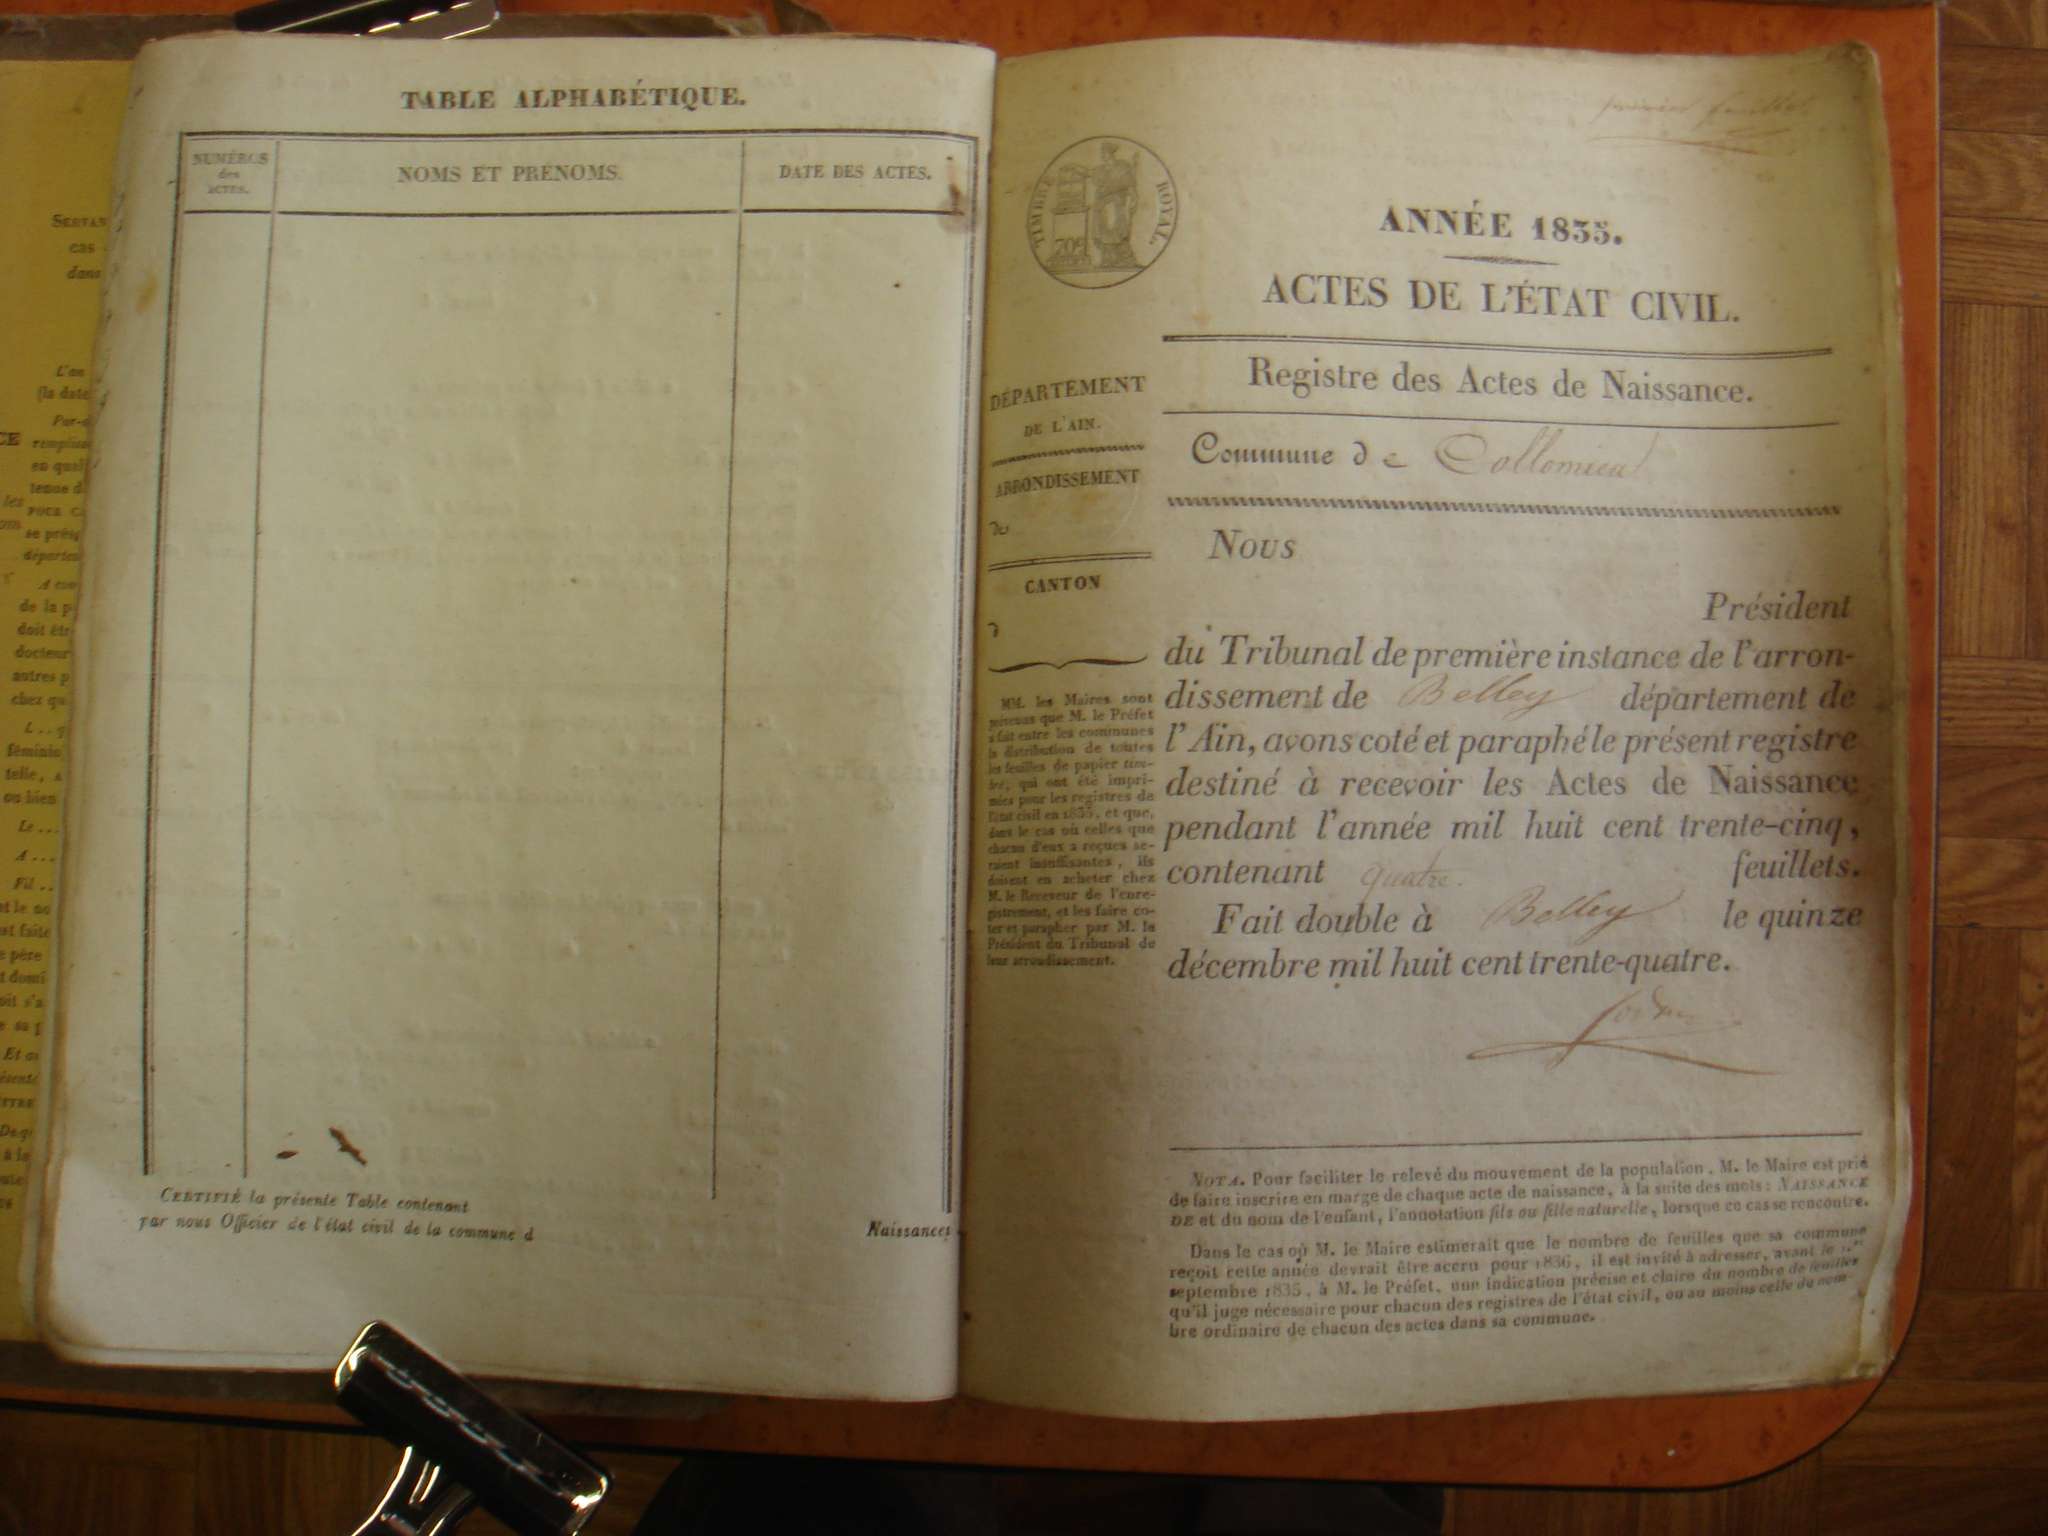 TABLE ALPHABÉTIQUE.
NUMÉROS
des
ACTES.
NOMS ET PRÉNOMS.
DATE DES ACTES.
CERTIFIÉ la présente Table contenant
Naissances
par nous Officier de l'état civil de la commune d
SERVAN
cas
dans
L'an
(la date
remplis
en qual
tenue d
les
POUR C
se prés
départem
A com
de la p
doit êtr
docteur
autres p
chez qu
féminin
telle, a
ou bien
Le...
A...
Fil..
et le no
est faite
e père
t domi
oit s'a
Et a
à la
premier feuillet
TIMBRE ROYAL.
70c
ANNÉE 1835.
ACTES DE L'ÉTAT CIVIL.
Registre des Actes de Naissance.
Commune de Collomieu
DÉPARTEMENT
DE L'AIN.
ARRONDISSEMENT
de
CANTON
d
MM. les Maires sont
prévenus que M. le Préfet
a fait entre les communes
la distribution de toutes
les feuilles de papier tim-
bré, qui ont été impri-
mées pour les registres de
l'état civil en 1835, et que,
dans le cas où celles que
chacun d'eux a reçues se-
raient insuffisantes, ils
doivent en acheter chez
M. le Receveur de l'enre-
gistrement, et les faire co-
ter et parapher par M. le
Président du Tribunal de
leur arrondissement.
Nous
Président
du Tribunal de première instance de l'arron-
dissement de Belley département de
l'Ain, avons coté et paraphé le présent registre
destiné à recevoir les Actes de Naissance
pendant l'année mil huit cent trente-cinq,
contenant quatre. feuillets.
Fait double à Belley le quinze
décembre mil huit cent trente-quatre.
NOTA. Pour faciliter le relevé du mouvement de la population, M. le Maire est prié
de faire inscrire en marge de chaque acte de naissance, à la suite des mots: NAISSANCE
DE et du nom de l'enfant, l'annotation fils ou fille naturelle, lorsque ce cas se rencontre.
Dans le cas où M. le Maire estimerait que le nombre de feuilles que sa commune
reçoit cette année devrait être accru pour 1836, il est invité à adresser, avant le 1er
septembre 1835, à M. le Préfet, une indication précise et claire du nombre de feuilles
qu'il juge nécessaire pour chacun des registres de l'état civil, ou au moins celle du nom-
bre ordinaire de chacun des actes dans sa commune.